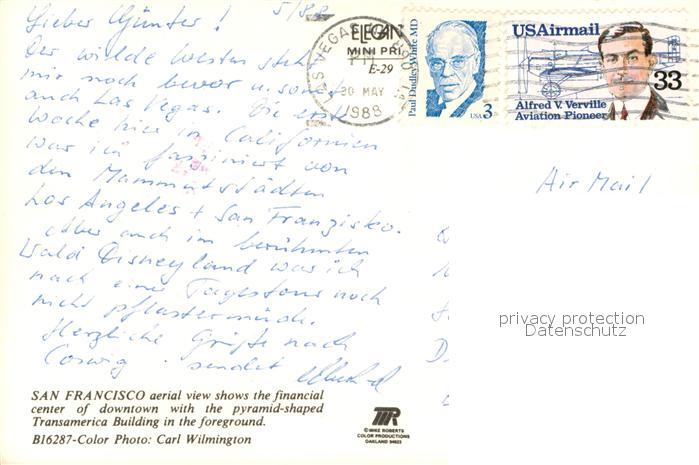 Lieber Günter! 5/88
Der wilde Westen steht
mir noch bevor u. somit
auch Las Vegas. Die erste
Woche hier in Californien
war ich fasziniert von
den Mammutstädten
Los Angeles + San Franzisko.
Aber auch im berühmten
Wald Disneyland war ich
nach einer Tagestour noch
nicht pflastermüde.
Herzliche Grüße nach
Coswig sendet
SAN FRANCISCO aerial view shows the financial
center of downtown with the pyramid-shaped
Transamerica Building in the foreground.
B16287-Color Photo: Carl Wilmington
MR
©MIKE ROBERTS
COLOR PRODUCTIONS
OAKLAND 94623
ELEGAN
MINI PRI
E-29
LAS VEGAS
PM
30 MAY
1988
Paul Dudley White MD
USA 3
USAirmail
33
Alfred V. Verville
Aviation Pioneer
Air Mail
privacy protection
Datenschutz